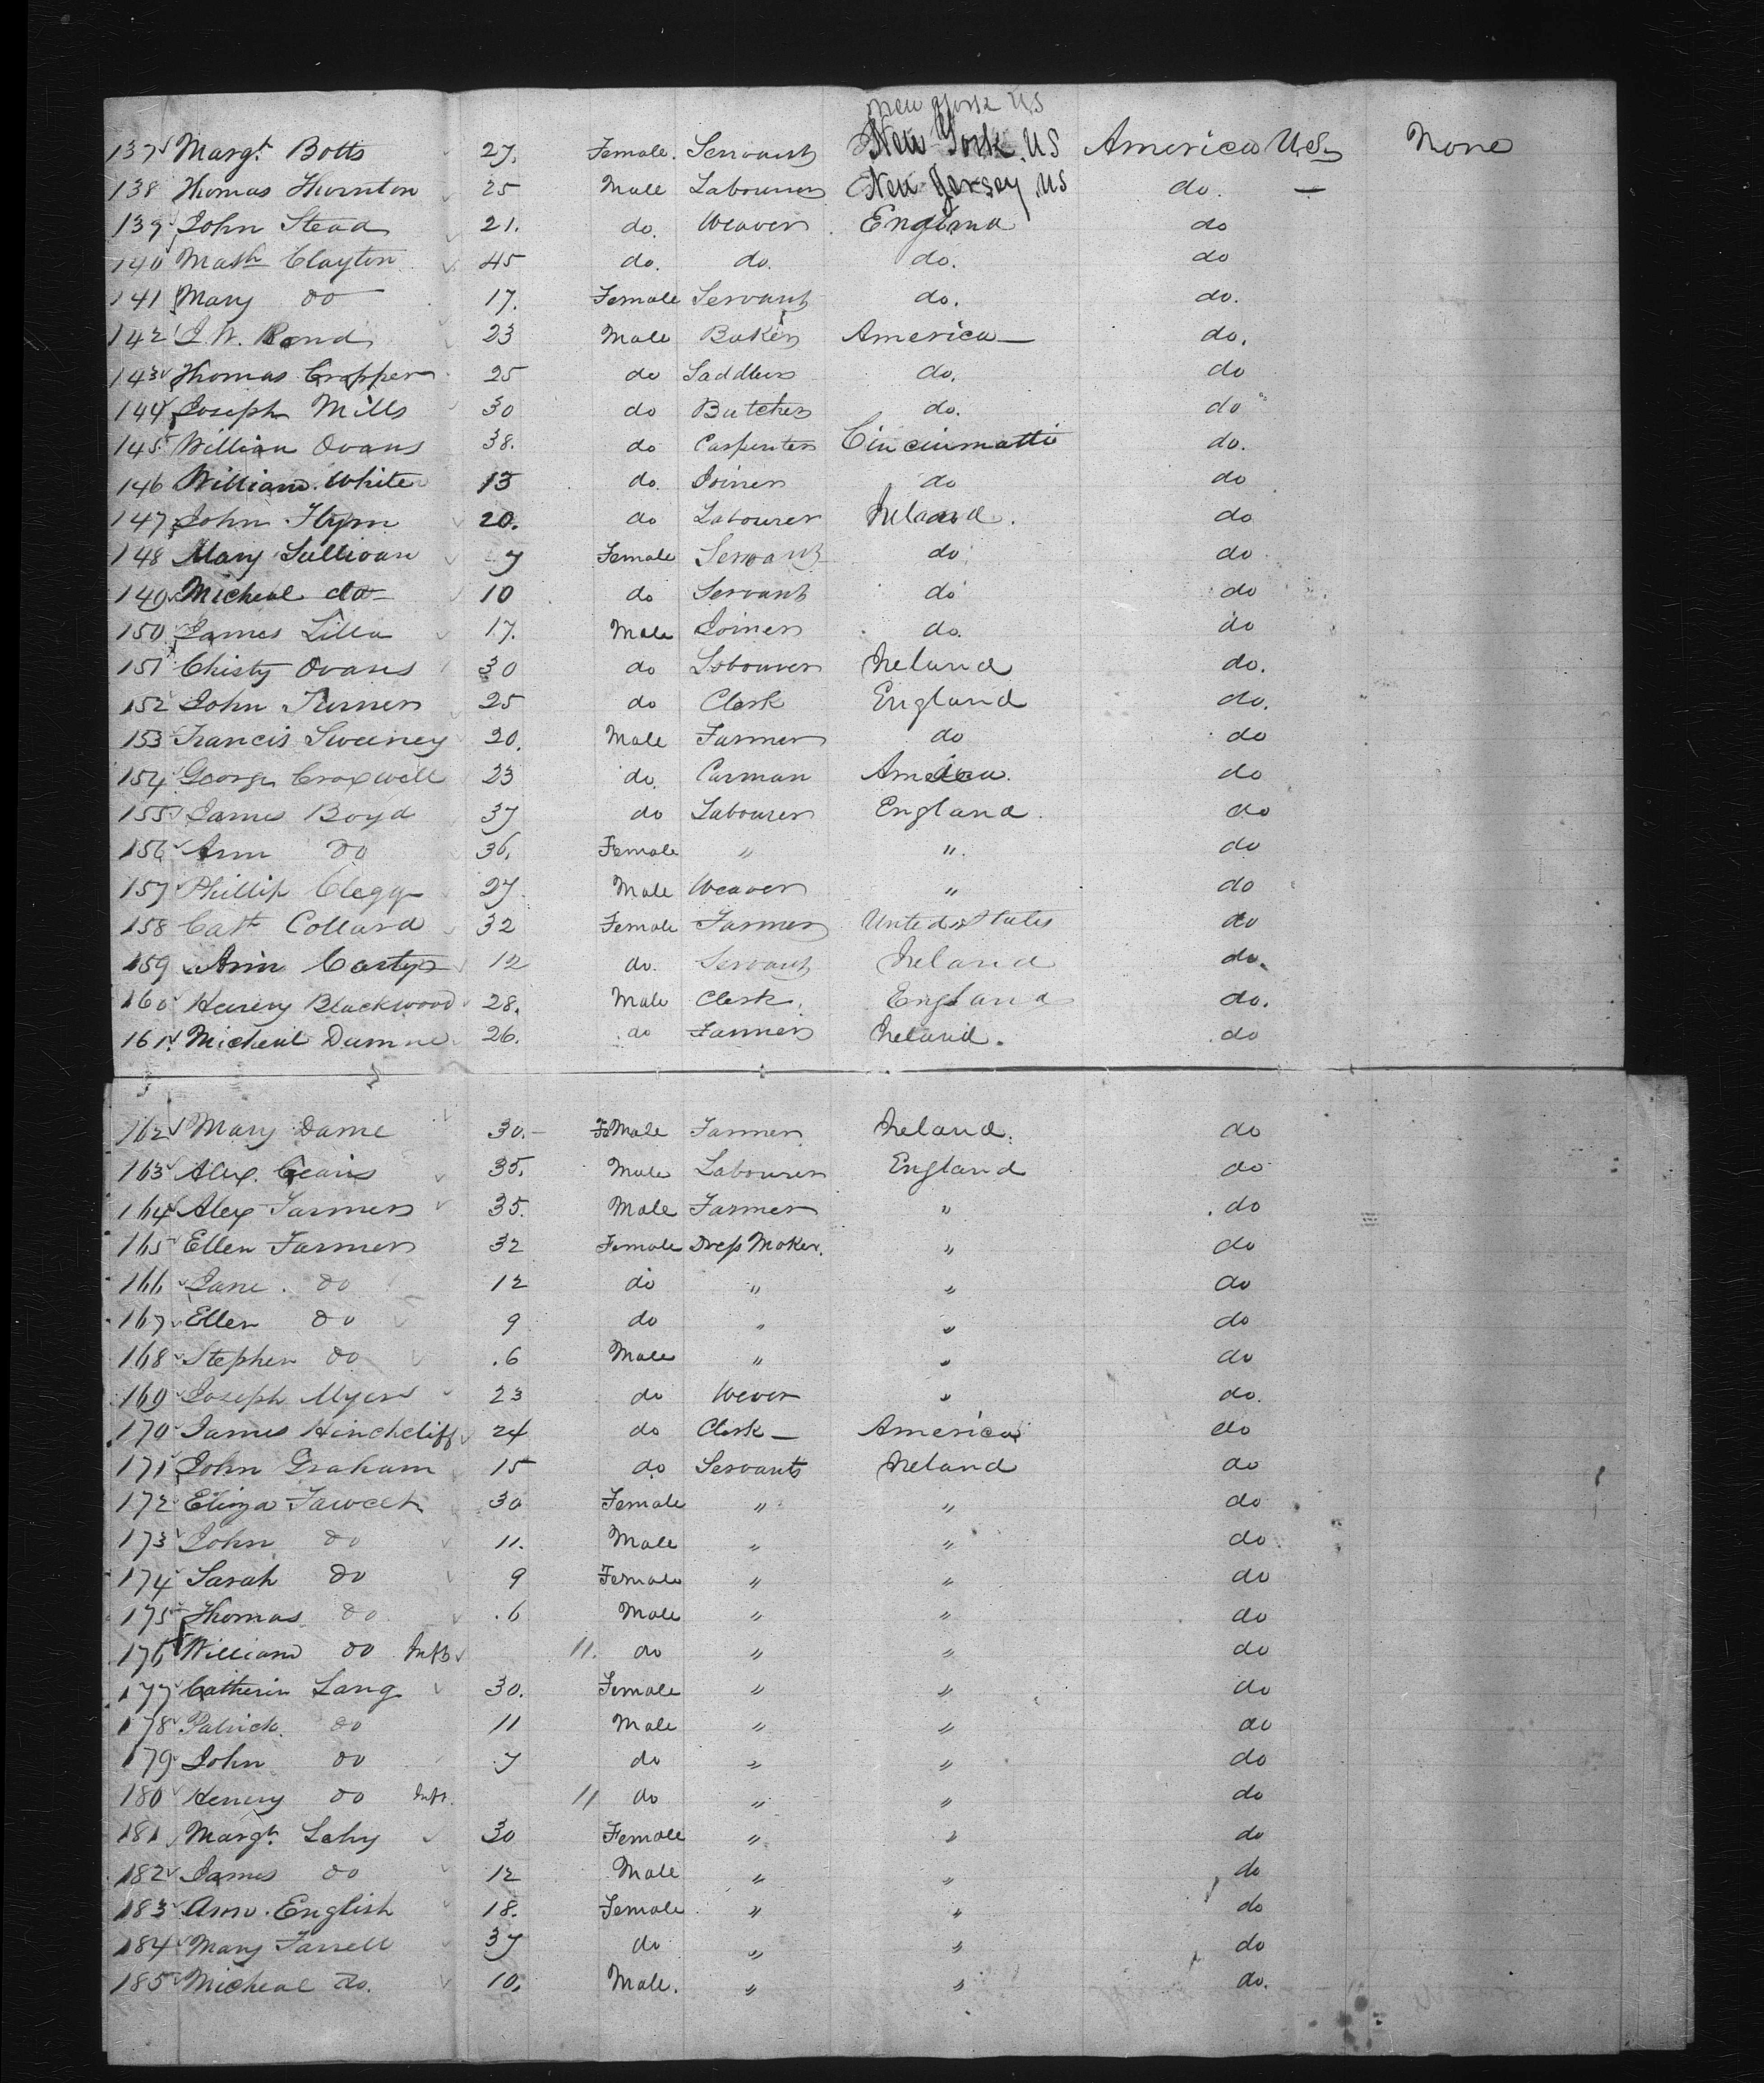 New York US
137 Margt. Botts 27. Female. Servant New York. US America U.S. None
138 Thomas Thornton 25 Male Labourer New Jersey, US do. —
139 John Stead 21. do. Weaver England do
140 Math Clayton 45 do. do. do. do
141 Mary do 17. Female Servant do. do.
142 J. W. Rond 23 Male Baker America — do.
143 Thomas Cropper 25 do Saddler do. do
144 Joseph Mills 30 do Butcher do. do
145 William Ovans 38. do Carpenter Cincinmatti do.
146 William White 15 do. Joiner do do
147 John Flynn 20. do Labourer Ireland. do
148 Mary Sullivan 7 Female Servant do do
149 Micheal do 10 do Servant do do
150 James Lilla 17. Male Joiner do. do
151 Chisty Ovans 30 do Labourer Ireland do.
152 John Turner 25 do Clerk England do.
153 Francis Sweeney 20. Male Farmer do do
154 George Croxwell 23 do. Carman America. do
155 James Boyd 37 do Labourer England. do
156 Ann do 36. Female " ". do
157 Phillip Clegg 27. Male Weaver " do
158 Cath Collard 32 Female Farmer United States do
159 Ann Carty 12 do. Servant Ireland do.
160 Henery Blackwood 28. Male Clerk. England do.
161. Micheal Dumne 26. do Farmer Ireland. do
162 Mary Dame 30. — FeMale Farmer Ireland. do
163 Alex. 35. Male Labourer England do
164 Alex Farmer 35. Male Farmer " do
165 Ellen Farmer 32 Female Dress Maker. " do
166 Jane. do 12 do " " do
167 Ellen do 9 do " " do
168 Stephen do .6 Male " " do
169 Joseph Myers 23 do Wever " do.
170 James Hinchcliff 24 do Clerk — America do
171 John Graham 15 do Servants Ireland do
172 Eliza Fawcet 30 Female " " do
173 John do 11. Male " " do
174 Sarah do 9 Female " " do
175 Thomas do .6 Male " " do
176 William do Inft 11. do " " do
177 Catherin Lang 30. Female " " do
178 Patrick. do 11 Male " " do
179 John do 7 do " " do
180 Henery do Inft. 11 do " " do
181 Margt. Lahy 30 Female " " do
182 James do 12 Male " " do
183 Ann. English 18. Female " " do
184 Mary Farrell 37 do " " do
185 Micheal do. 10. Male. " " do.